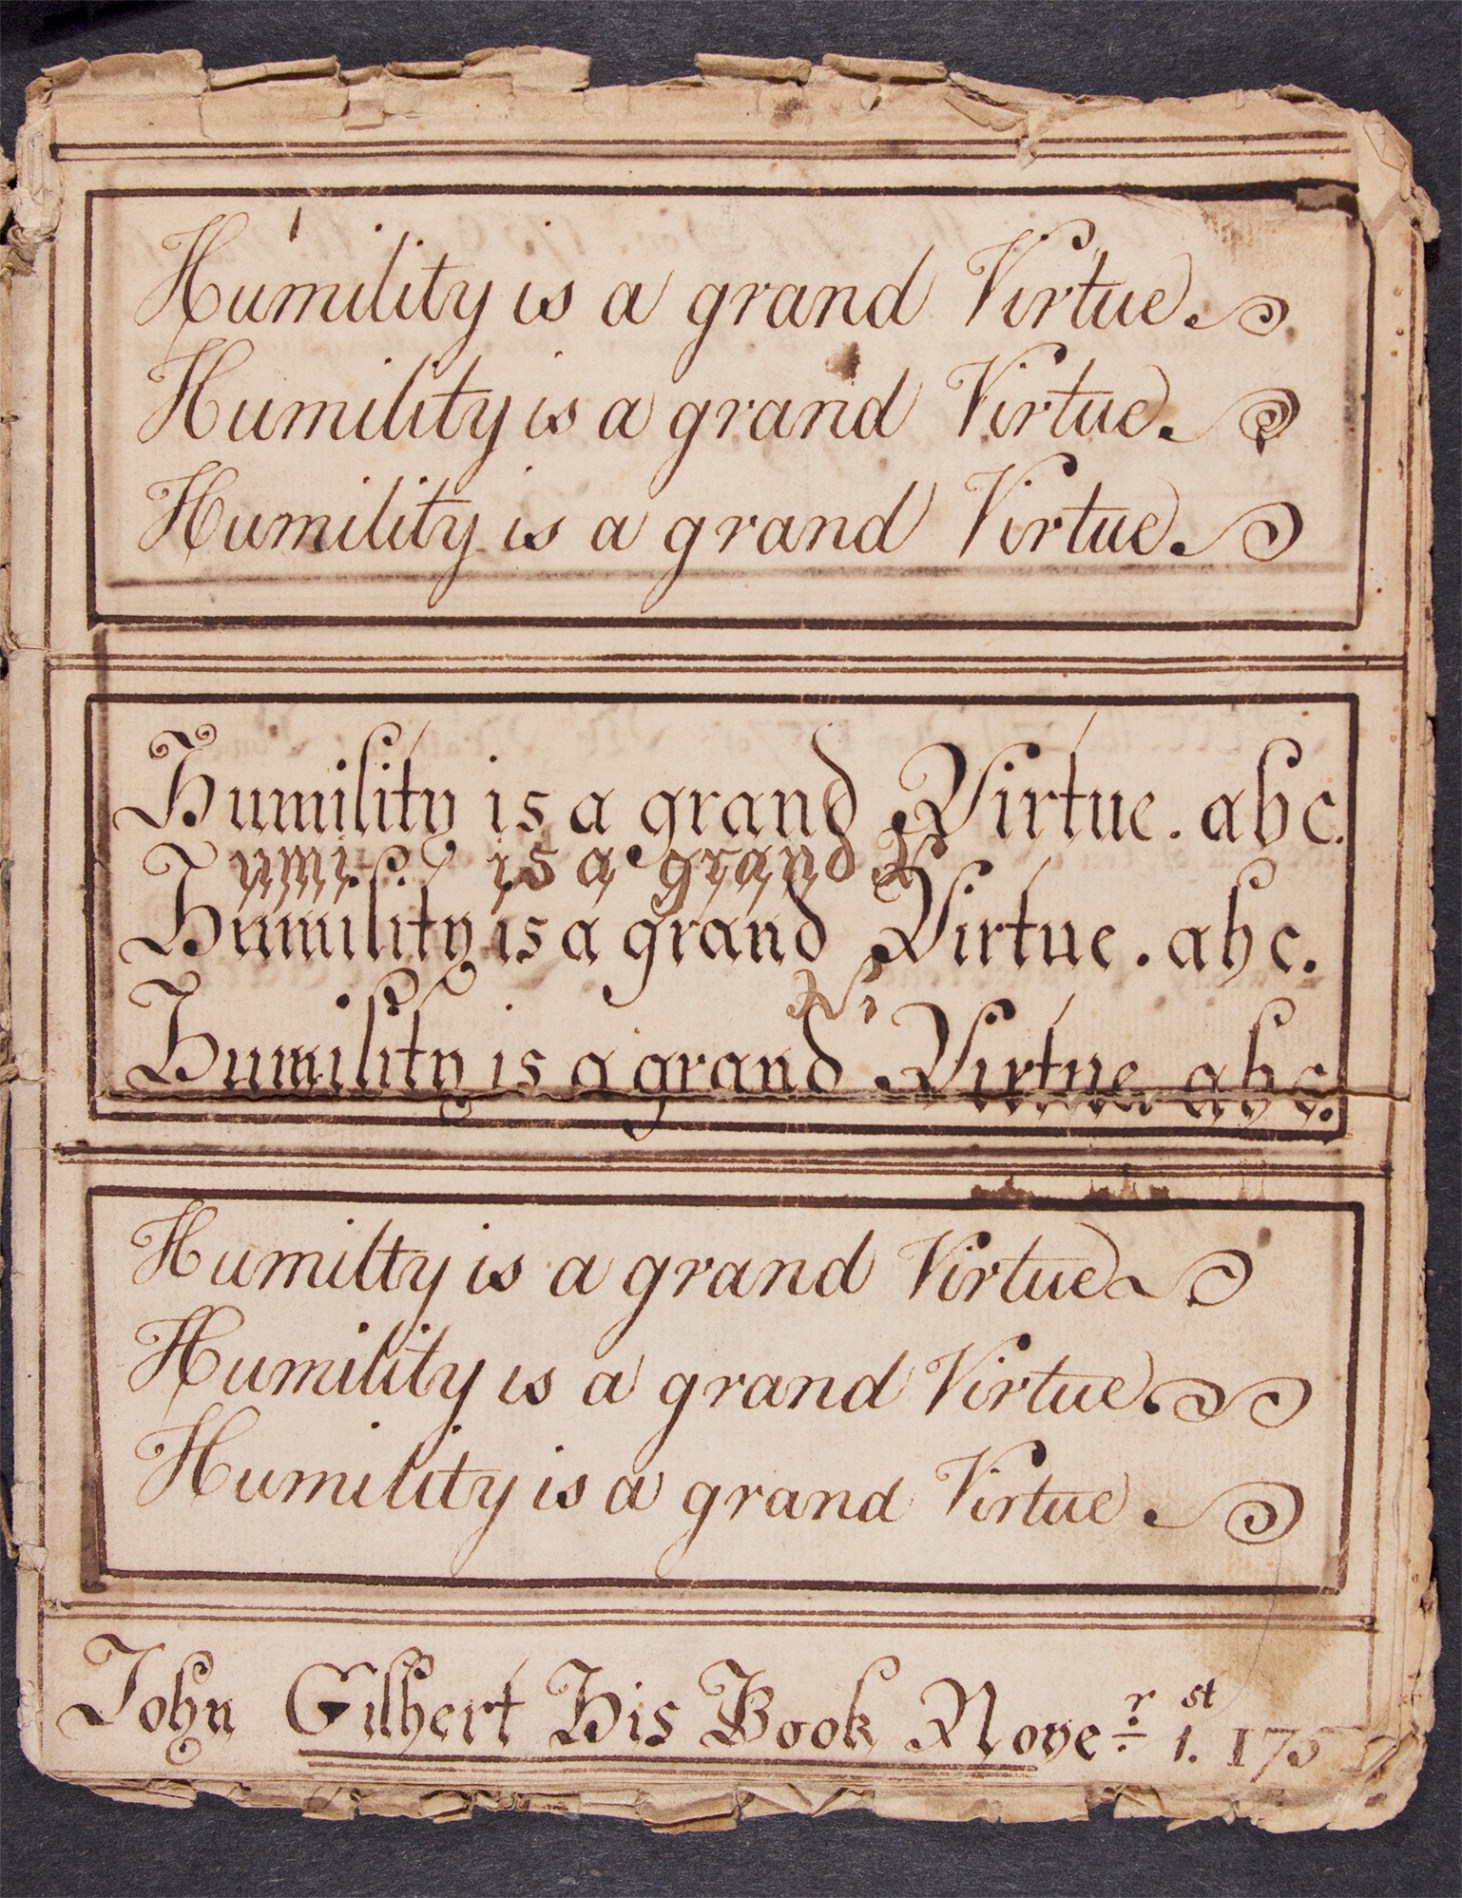 Humility is a grand Virtue.
Humility is a grand Virtue.
Humility is a grand Virtue.
Humility is a grand Virtue. abc.
is a grand
Humility is a grand Virtue. abc.
Humility is a grand Virtue abc.
Humiltty is a grand Virtue
Humility is a grand Virtue.
Humility is a grand Virtue.
John Gilbert His Book Nove.r 1.st